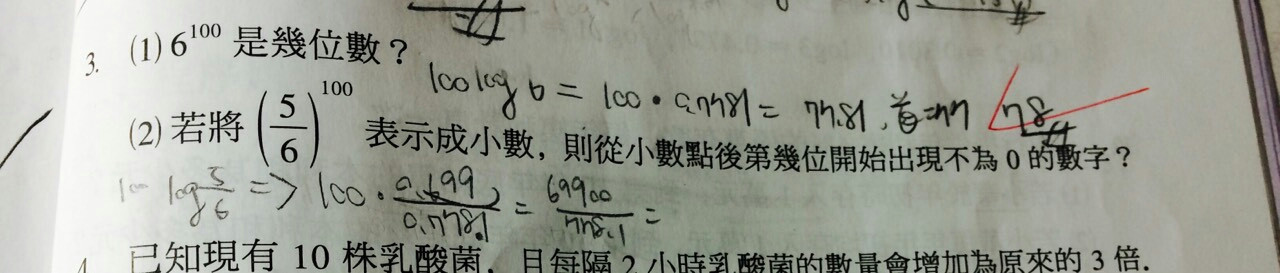 3. (1) 6^100 是幾位數？
100 log 6 = 100 · 0.7781 = 77.81, 首=77 78
(2) 若將 (5/6)^100 表示成小數，則從小數點後第幾位開始出現不為 0 的數字？
100 log 5/6 => 100 · 0.699/0.7781 = 69900/778.1 =
4. 已知現有 10 株乳酸菌，且每隔 2 小時乳酸菌的數量會增加為原來的 3 倍．